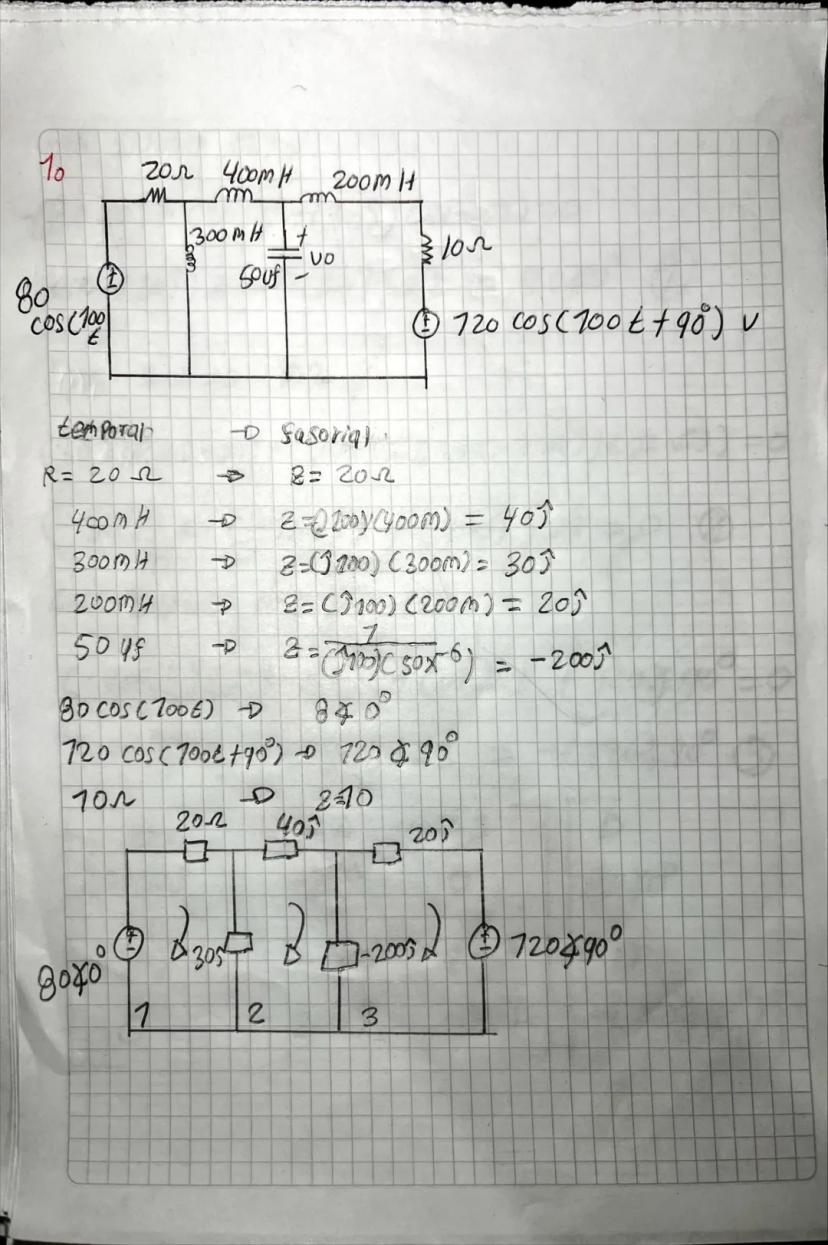 10
20Ω 400mH 200mH
300mH + 10Ω
50uf vo
-
80 cos(100t
120 cos(100t+90°) v
temporal → fasorial
R= 20Ω → Z= 20Ω
400mH → Z=(j100)(400m) = 40j
300mH → Z=(j100)(300m)= 30j
200mH → Z=(j100)(200m) = 20j
50 uf → Z= 1/(j100)(50x^-6) = -200j
80 cos(100t) → 8∡0°
120 cos(100t+90°) → 120∡90°
10Ω → Z=10
20Ω 40j 20j
80∡0° 30j -200j 120∡90°
1 2 3